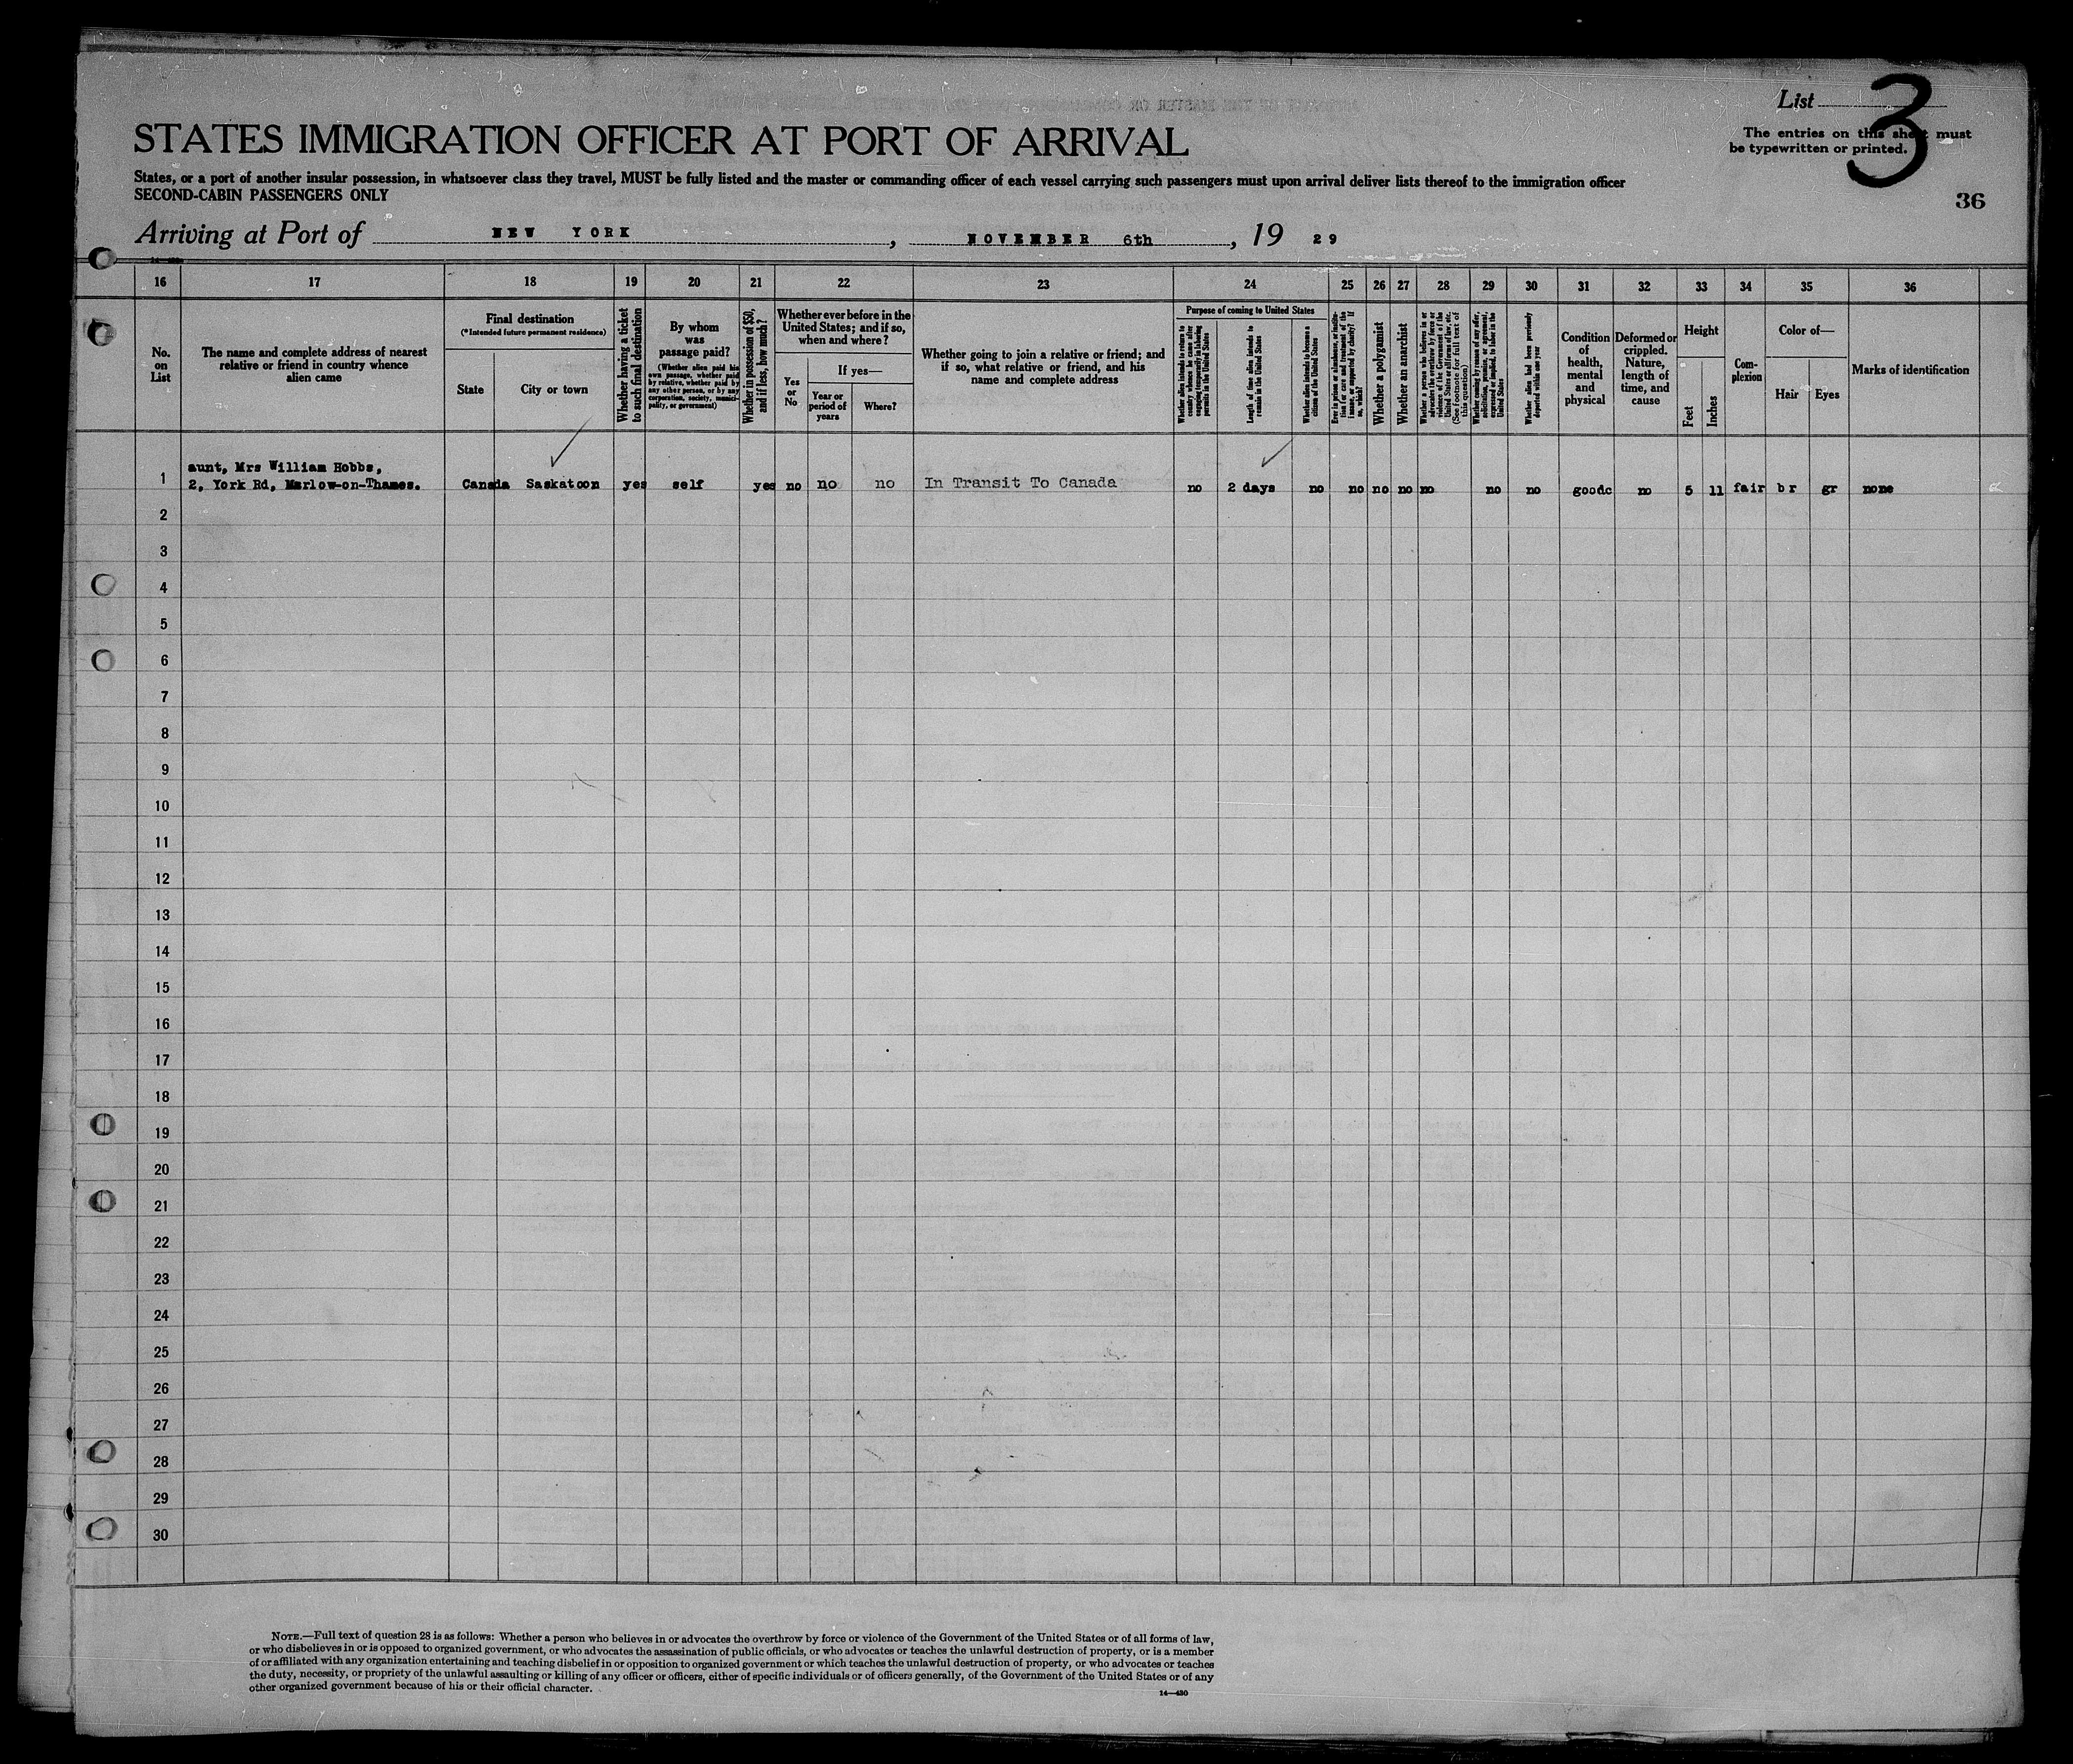 List 3
STATES IMMIGRATION OFFICER AT PORT OF ARRIVAL
The entries on this sheet must
be typewritten or printed.
States, or a port of another insular possession, in whatsoever class they travel, MUST be fully listed and the master or commanding officer of each vessel carrying such passengers must upon arrival deliver lists thereof to the immigration officer
SECOND-CABIN PASSENGERS ONLY
36
Arriving at Port of NEW YORK, NOVEMBER 6th, 19 29
16 17 18 19 20 21 22 23 24 25 26 27 28 29 30 31 32 33 34 35 36
No.
on
List
The name and complete address of nearest
relative or friend in country whence
alien came
Final destination
(*Intended future permanent residence)
State
City or town
Whether having a ticket
to such final destination
By whom
was
passage paid?
(Whether alien paid his
own passage, whether paid
by relative, whether paid by
any other person, or by any
corporation, society, munici-
pality, or government)
Whether in possession of $50,
and if less, how much?
Whether ever before in the
United States; and if so,
when and where?
Yes
or
No
If yes—
Year or
period of
years
Where?
Whether going to join a relative or friend; and
if so, what relative or friend, and his
name and complete address
Purpose of coming to United States
Whether alien intends to return to
country whence he came after
engaging temporarily in laboring
pursuits in the United States
Length of time alien intends to
remain in the United States
Whether alien intends to become a
citizen of the United States
Ever in prison or almshouse, or institu-
tion for care and treatment of the
insane, or supported by charity? If
so, which?
Whether a polygamist
Whether an anarchist
Whether a person who believes in or
advocates the overthrow by force or
violence of the Government of the
United States or all forms of law, etc.
(See footnote for full text of
this question)
Whether coming by reason of any offer,
solicitation, promise, or agreement,
expressed or implied, to labor in the
United States
Whether alien had been previously
deported within one year
Condition
of
health,
mental
and
physical
Deformed or
crippled.
Nature,
length of
time, and
cause
Height
Feet
Inches
Com-
plexion
Color of—
Hair
Eyes
Marks of identification
aunt, Mrs William Hobbs,
1 2, York Rd, Marlow-on-Thames. Canada Saskatoon yes self yes no no no In Transit To Canada no 2 days no no no no no no no goodc no 5 11 fair br gr none
2
3
4
5
6
7
8
9
10
11
12
13
14
15
16
17
18
19
20
21
22
23
24
25
26
27
28
29
30
NOTE.—Full text of question 28 is as follows: Whether a person who believes in or advocates the overthrow by force or violence of the Government of the United States or of all forms of law,
or who disbelieves in or is opposed to organized government, or who advocates the assassination of public officials, or who advocates or teaches the unlawful destruction of property, or is a member
of or affiliated with any organization entertaining and teaching disbelief in or opposition to organized government or which teaches the unlawful destruction of property, or who advocates or teaches
the duty, necessity, or propriety of the unlawful assaulting or killing of any officer or officers, either of specific individuals or of officers generally, of the Government of the United States or of any
other organized government because of his or their official character.
14—430